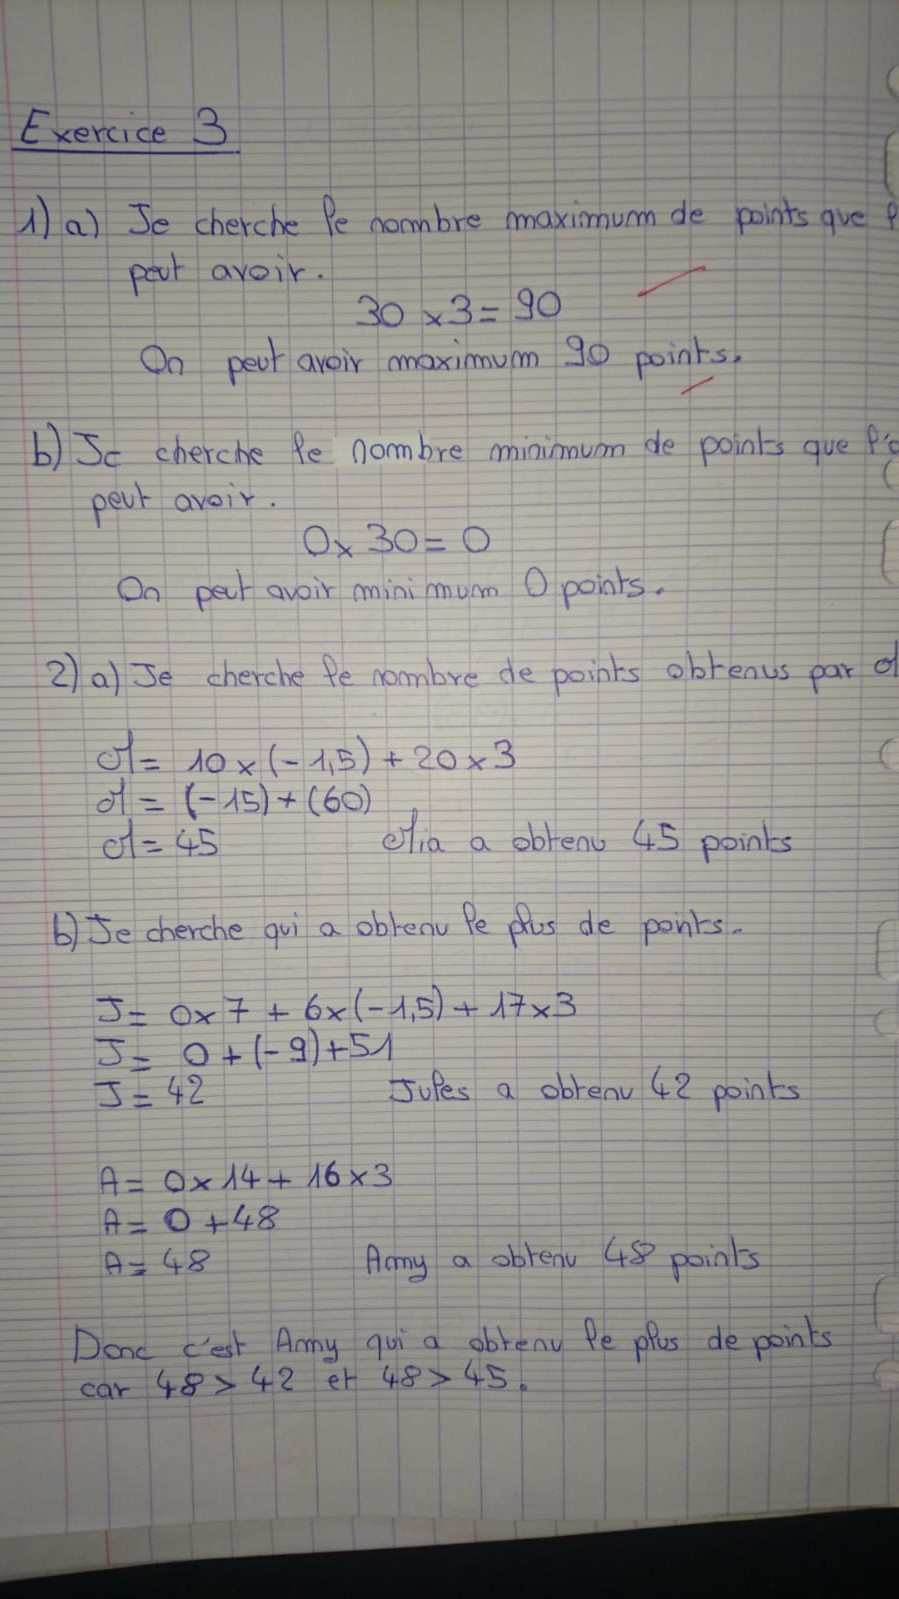 Exercice 3
1) a) Je cherche le nombre maximum de points que
peut avoir.
30 x 3 = 90
On peut avoir maximum 90 points.
b) Je cherche le nombre minimum de points que
peut avoir.
0 x 30 = 0
On peut avoir minimum 0 points.
2) a) Je cherche le nombre de points obtenus par
M = 10 x (-1,5) + 20 x 3
M = (-15) + (60)
M = 45 Mia a obtenu 45 points
b) Je cherche qui a obtenu le plus de points.
J = 0 x 7 + 6 x (-1,5) + 17 x 3
J = 0 + (-9) + 51
J = 42 Jules a obtenu 42 points
A = 0 x 14 + 16 x 3
A = 0 + 48
A = 48 Amy a obtenu 48 points
Donc c'est Amy qui a obtenu le plus de points
car 48 > 42 et 48 > 45.